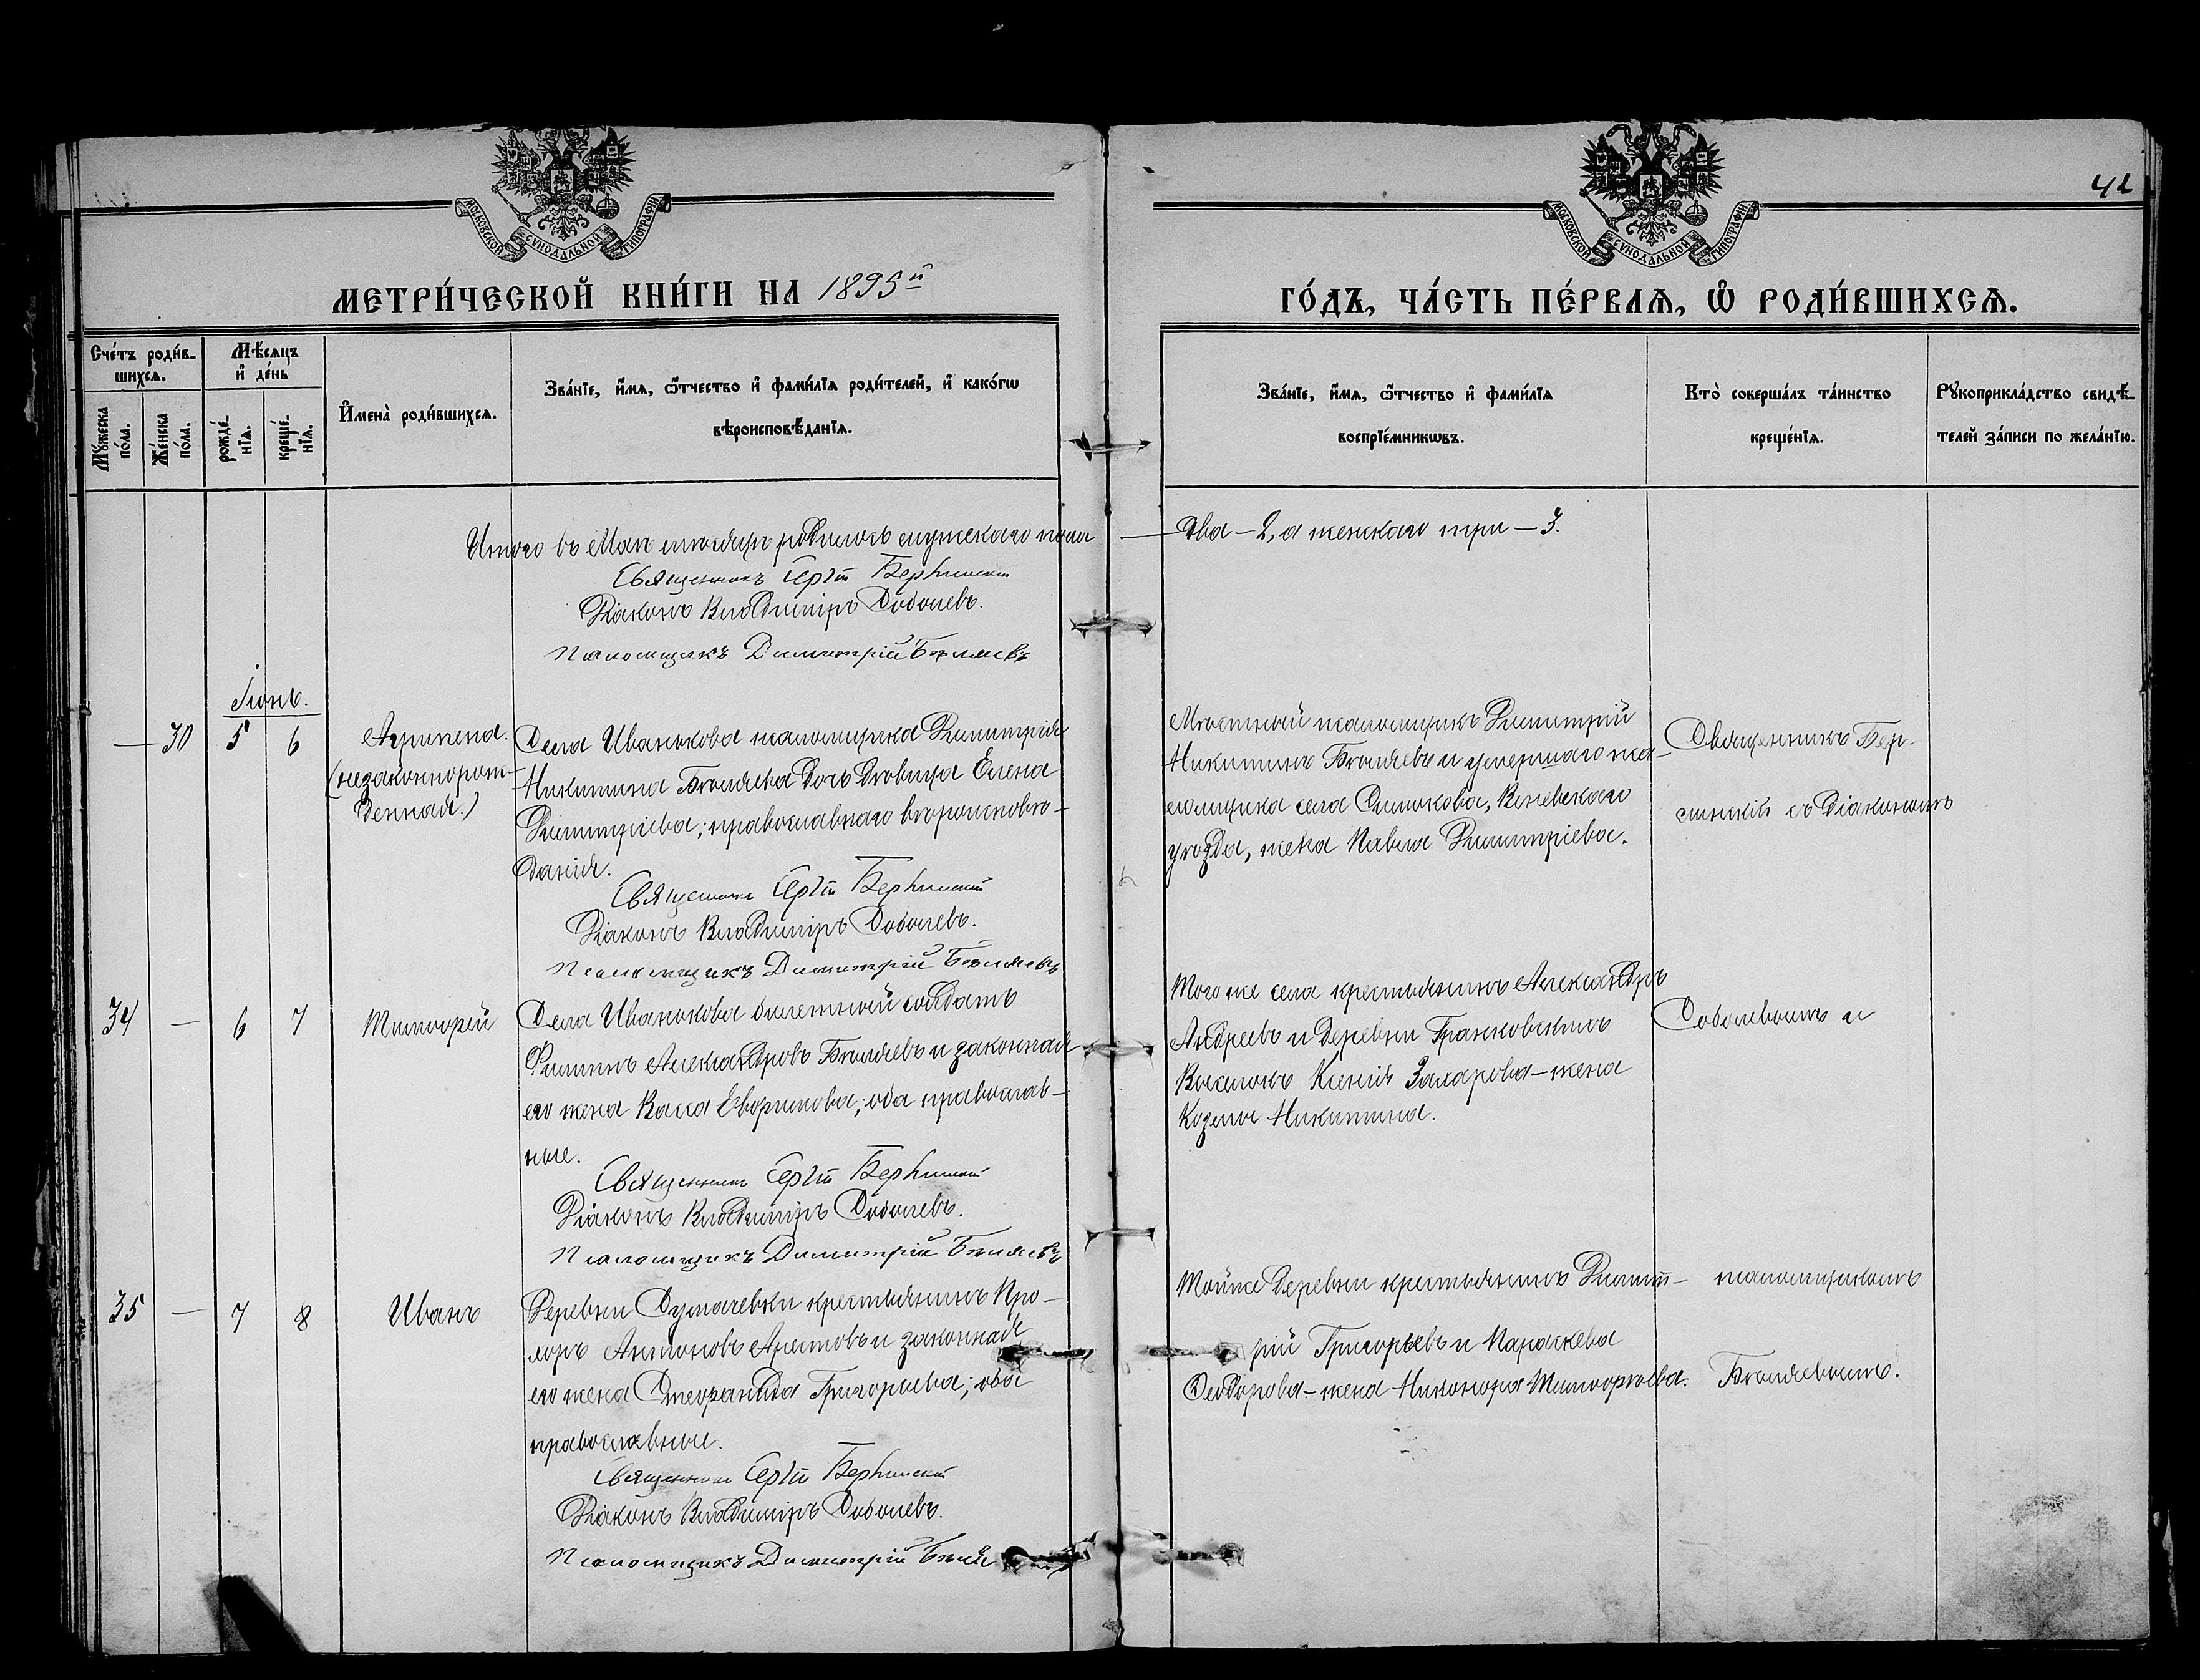 42
МОСКОВСКОЙ СѴНОДАЛЬНОЙ ТИПОГРАФІИ
МОСКОВСКОЙ СѴНОДАЛЬНОЙ ТИПОГРАФІИ
МЕТРИ́ЧЕСКОЙ КНИ́ГИ НА 1895й
ГО́ДЪ, ЧА́СТЬ ПЕ́РВАѦ, Ѡ҆ РОДИ́ВШИХСѦ.
Сче́тъ роди́в-
шихсѧ.
Мꙋ́жеска по́ла.
Же́нска по́ла.
Мѣ́сѧцъ
и҆ де́нь
рожде́-
нїѧ.
креще́-
нїѧ.
И҆мена̀ роди́вшихсѧ.
Зва́нїе, и҆́мѧ, ѻ҆́тчество и҆ фами́лїѧ роди́телей, и҆ како́гѡ
вѣроисповѣ́данїѧ.
Зва́нїе, и҆́мѧ, ѻ҆́тчество и҆ фами́лїѧ
воспрїе́мникѡвъ.
Кто̀ соверша́лъ та́инство
креще́нїѧ.
Рꙋкоприкла́дство свидѣ́-
телей за́писи по жела́нїю.
Итого въ Маѣ мѣсяцѣ родилось мужескаго пола — два – 2, а женскаго три – 3.
Священникъ Сергій
Діаконъ Владиміръ Соболевъ.
Псаломщикъ Димитрій Бѣляевъ
Іюнь.
— 30 5 6
Агрипена.
(незаконнорож-
денная.)
Села Иванькова псаломщика Димитрія
Никитина Бѣляева дочь дѣвица Елена
Димитріева; православнаго вѣроисповѣ-
данія.
Священникъ Сергій
Діаконъ Владиміръ Соболевъ.
Псаломщикъ Димитрій Бѣляевъ
Мѣстный псаломщикъ Димитрій
Никитинъ Бѣляевъ и умершаго пса-
ломщика села Симонова, Веневскаго
уѣзда, жена Павла Димитріева.
Священникъ Бер-
съ діакономъ
34 — 6 7
Тимоѳей
Села Иванькова билетный солдатъ
Филиппъ Александровъ Бѣляевъ и законная
его жена Васса Евфимова; оба православ-
ные.
Священникъ Сергій
Діаконъ Владиміръ Соболевъ.
Псаломщикъ Димитрій Бѣляевъ
Того же села крестьянинъ Александръ
Андреевъ и деревни Гранковскихъ
Выселокъ Ксенія Захарова – жена
Козьмы Никитина.
Соболевымъ и
35 — 7 8
Иванъ
Деревни крестьянинъ Про-
хоръ Антоновъ и законная
его жена Стефанида Григорьева; обое
православные.
Священникъ Сергій
Діаконъ Владиміръ Соболевъ.
Псаломщикъ Димитрій
Той же деревни крестьянинъ Димит-
рій Григорьевъ и Параскева
Ѳеодорова – жена Никонора Тимоѳѣева.
псаломщикомъ
Бѣляевымъ.